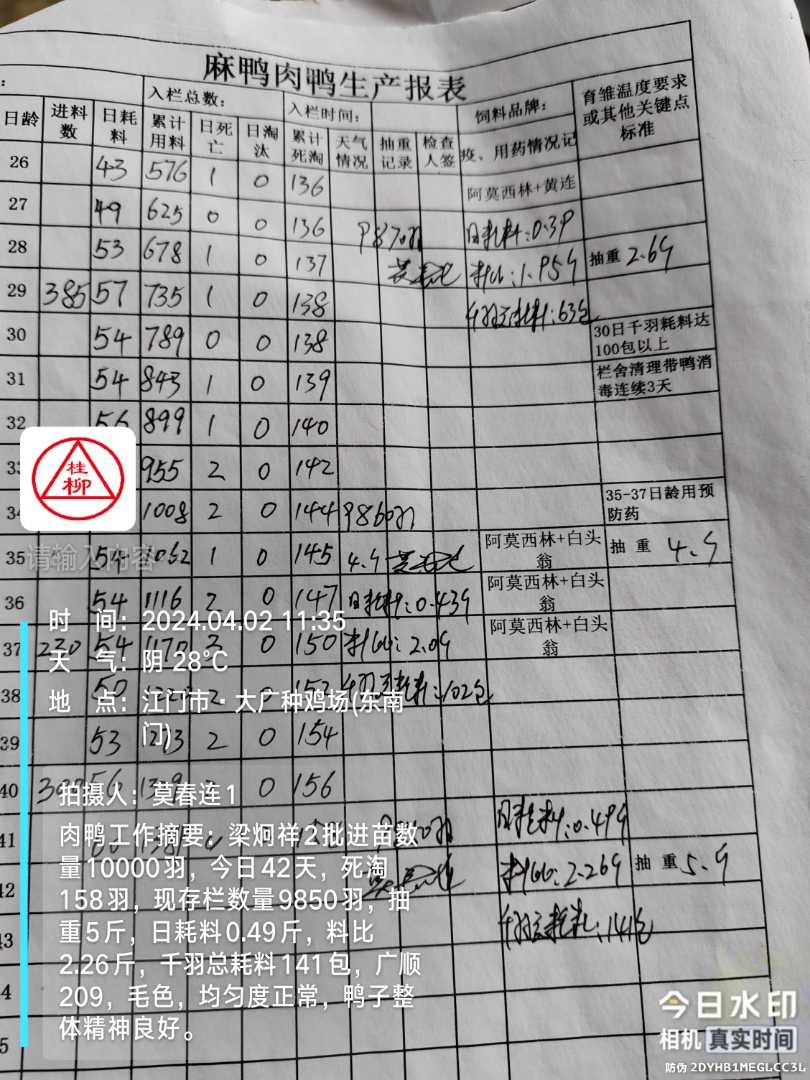 麻鸭肉鸭生产报表
入栏总数： 入栏时间： 饲料品牌： 育雏温度要求或其他关键点标准
日龄 进料数 日耗料 累计用料 日死亡 日淘汰 累计死淘 天气情况 抽重记录 检查人签 疫、用药情况记
26 43 576 1 0 136 阿莫西林+黄连
27 49 625 0 0 136 9870羽 日耗料:0.39
28 53 678 1 0 137 料比:1.959 抽重 2.69
29 385 57 735 1 0 138 千羽总耗料:63包
30 54 789 0 0 138 30日千羽耗料达100包以上
31 54 843 1 0 139 栏舍清理带鸭消毒连续3天
32 56 899 1 0 140
955 2 0 142
1008 2 0 144 9860羽 35-37日龄用预防药
35 54 1062 1 0 145 阿莫西林+白头翁 抽重
36 54 1116 2 0 147 日耗料:0.439 阿莫西林+白头翁
37 230 54 1170 3 0 150 料比:2.09 阿莫西林+白头翁
38 50 0 千羽总耗料:102包
39 53 2 0 154
40 56 0 156
41 日耗料:0.499
42 料比:2.269 抽重
千羽总耗料:141包
桂柳
请输入内容
时 间：2024.04.02 11:35
天 气：阴 28°C
地 点：江门市·大广种鸡场(东南门)
拍摄人：莫春连1
肉鸭工作摘要：梁炯祥2批进苗数
量10000羽，今日42天，死淘
158羽，现存栏数量9850羽，抽
重5斤，日耗料0.49斤，料比
2.26斤，千羽总耗料141包，广顺
209，毛色，均匀度正常，鸭子整
体精神良好。
今日水印
相机 真实时间
防伪 2DYHB1MEGLCC3L